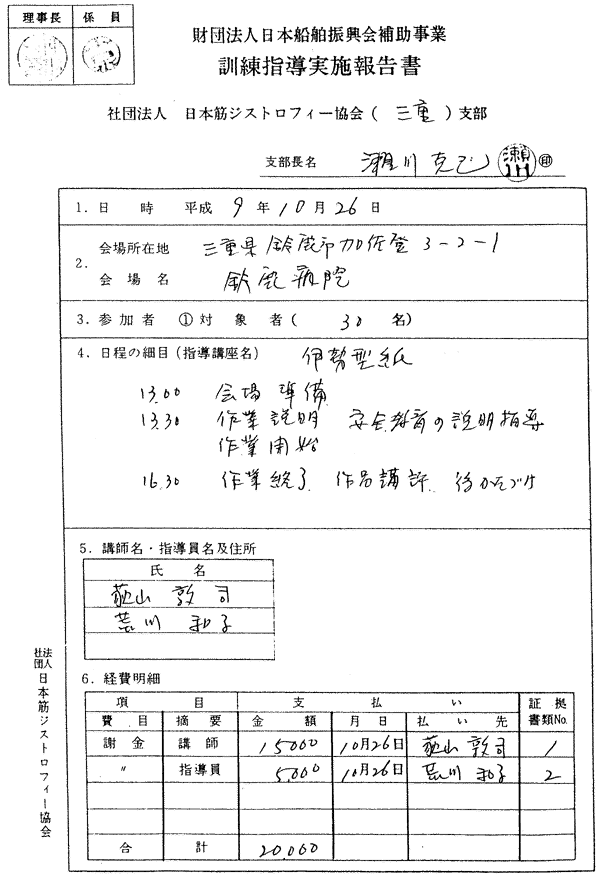 理事長 係員
財団法人日本船舶振興会補助事業
訓練指導実施報告書
社団法人 日本筋ジストロフィー協会(三重)支部
支部長名 瀬川 克己 瀬川 印
1.日 時 平成 9年10月26日
2.会場所在地 三重県鈴鹿市加佐登3-2-1
会場名 鈴鹿病院
3.参加者 ①対象者( 30名)
4.日程の細目(指導講座名) 伊勢型紙
13.00 会場準備
13.30 作業説明 安全教育の説明指導
作業開始
16.30 作業終了、作品講評、後かたづけ
5.講師名・指導員名及住所
氏 名
山 敦司
荒川 和子
6.経費明細
項 目 支 払 い 証拠
費目 摘要 金額 月日 払い先 書類No.
謝金 講師 15000 10月26日 山 敦司 1
〃 指導員 5.000 10月26日 荒川 和子 2
合 計 20.000
社団法人 日本筋ジストロフィー協会